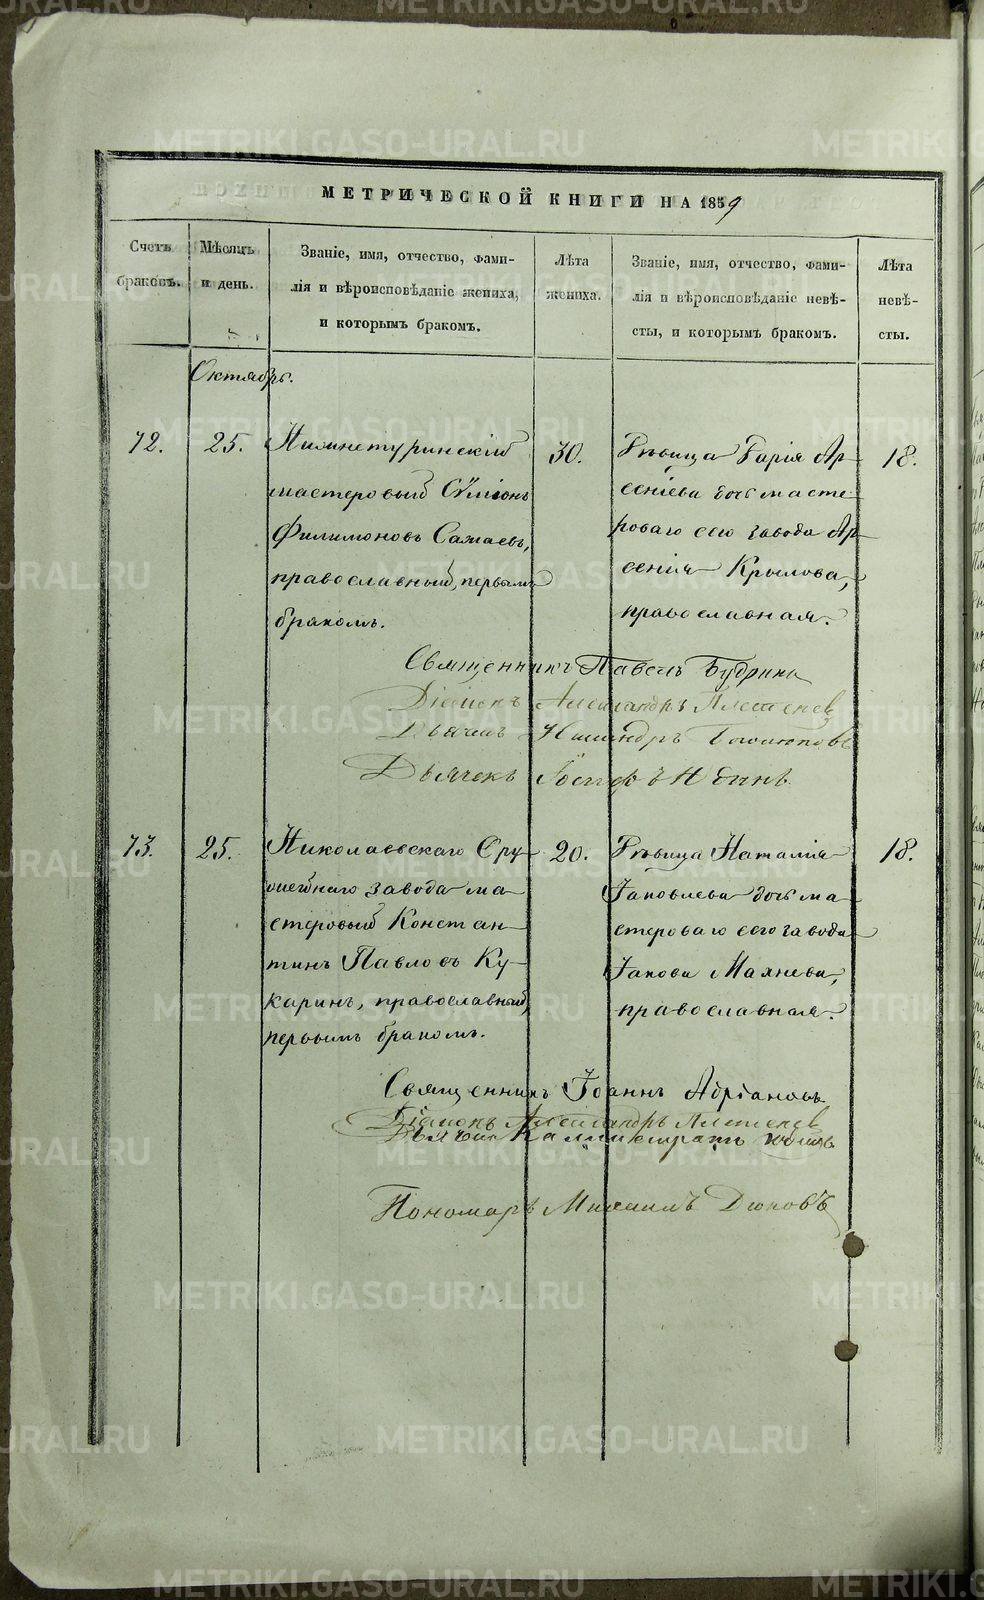 МЕТРИЧЕСКОЙ КНИГИ НА 1859
Счетъ браковъ.
Мѣсяцъ и день.
Званіе, имя, отчество, фами-
лія и вѣроисповѣданіе жениха,
и которымъ бракомъ.
Лѣта жениха.
Званіе, имя, отчество, фами-
лія и вѣроисповѣданіе невѣ-
сты, и которымъ бракомъ.
Лѣта невѣ-
сты.
Октябрь.
72.
25.
Нижнетуринскій
мастеровый Сѵмеонъ
Филимоновъ
православный, первымъ
бракомъ.
30.
Дѣвица Марія Ар-
сеніева дочь масте-
роваго сего завода Ар-
сенія Крылова,
православная.
18.
Священникъ Павелъ Будринъ
Діаконъ Александръ
Дьячекъ
Дьячекъ Іосифъ
73.
25.
Николаевскаго Ору-
жейнаго завода ма-
стеровый Констан-
тинъ Павловъ Ку-
каринъ, православный,
первымъ бракомъ.
20.
Дѣвица Наталія
Іаковлева дочь ма-
стероваго сего завода
Іакова Махнева,
православная.
18.
Священникъ Іоаннъ Адріановъ
Діаконъ Александръ
Дьячекъ Каллистратъ
Пономарь Михаилъ Дюковъ
METRIKI.GASO-URAL.RU